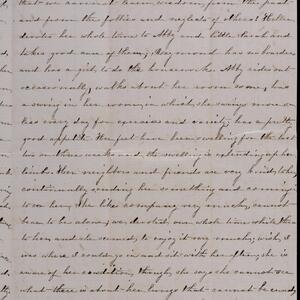 that we cannot learn wisdom from the past
and from the follies and neglects of others! Mother
devotes her whole time to Abby and little Sarah and
takes good care of them; Raymond has no burden
and has a girl to do the housework. Abby rides out
occasionally, walks about her room some, has
a swing in her room, in which she swings more or
less every day for exercise and variety; has a pretty
good appetite. Her feet have been swelling for the last
two or three weeks and the swelling is extending up her
limbs. Her neighbors and friends are very kind, they
continually sending her something and coming
to see her, she likes company very much, cannot
bear to be alone, we devoted our whole time while there
to her and she seemed to enjoy it so much, wish I
was where I could go in and sit with her often; she is
aware of her condition, though she says she cannot see
what there is about her lungs that cannot be cured